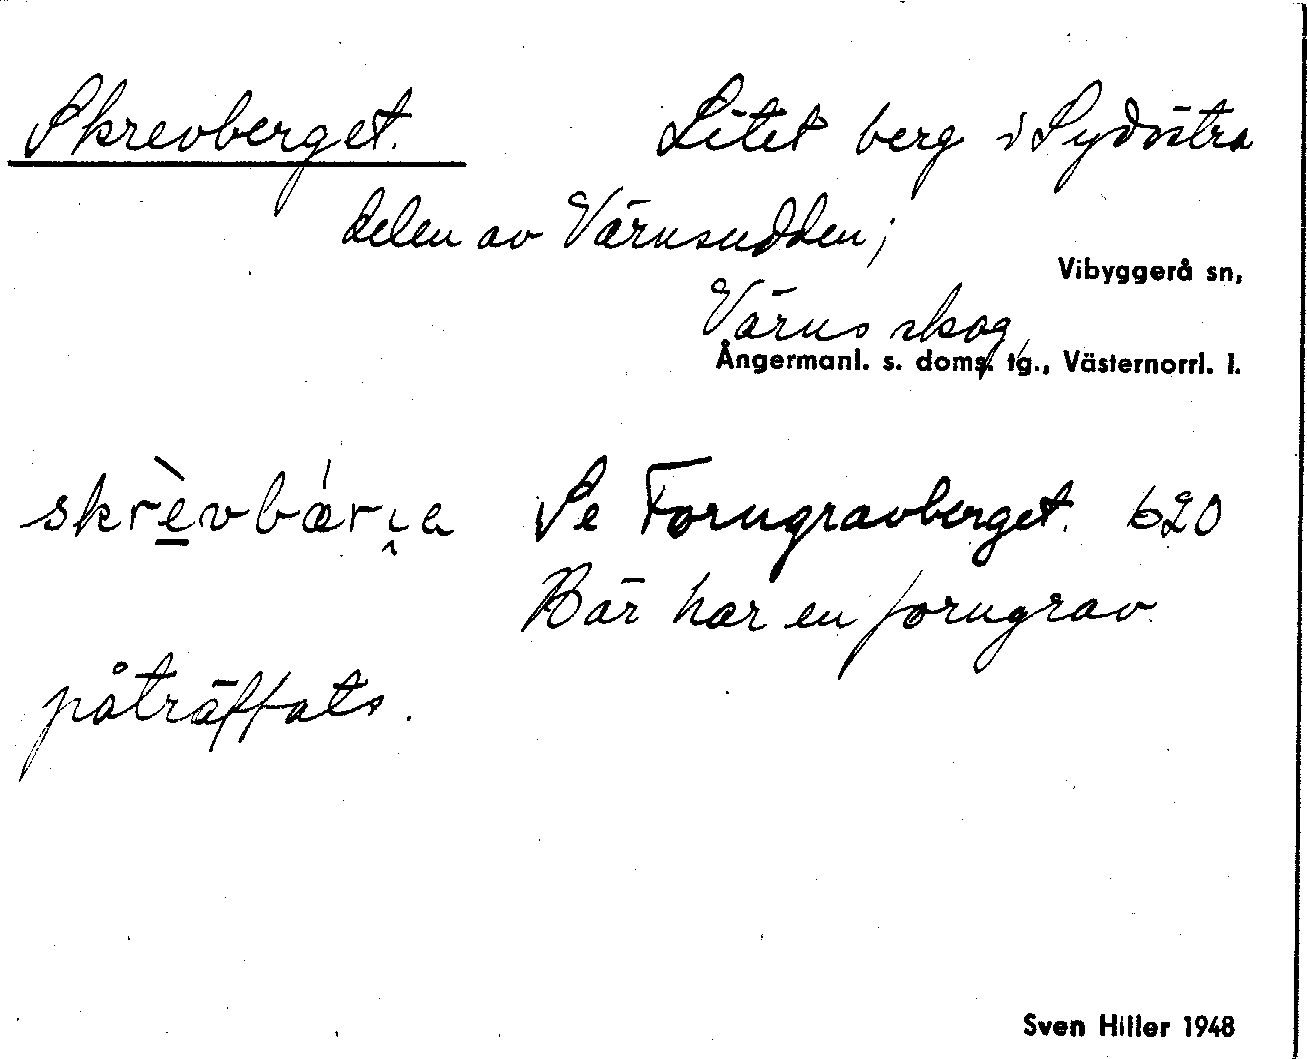 Skrevberget. Litet berg i Sydöstra
delen av Värnsudden;
Vibyggerå sn,
Värns skog,
Ångermanl. s. doms. tg., Västernorrl. l.
skrèvbær̀ı̯a Se Forngravberget. 620
Här har en forngrav
påträffats.
Sven Hiller 1948